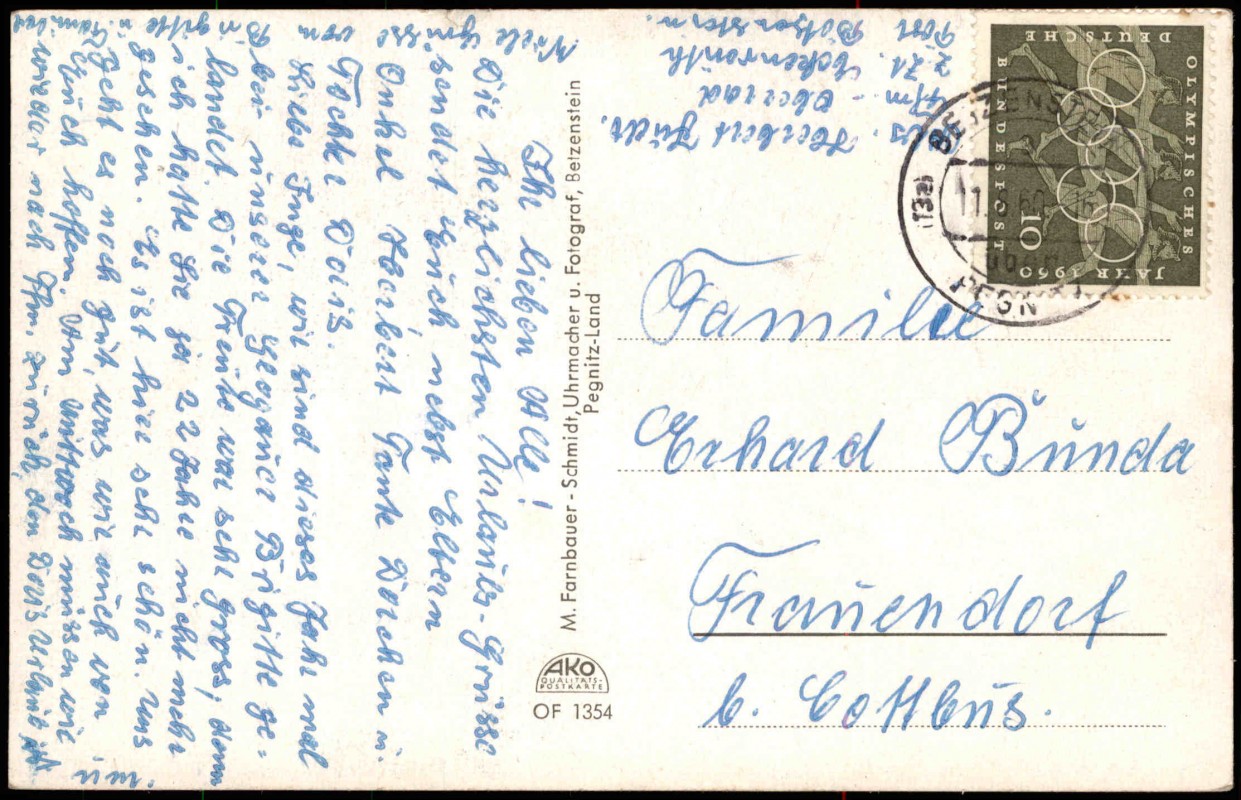 Ihr lieben Alle!
Die herzlichsten Urlaubs-Grüsse
sendet Euch nebst Eltern
Onkel Herbert Tante Dorchen u.
Tochter Doris.
Liebe Inge, wir sind dieses Jahr mal
bei unserer Brigitte ge-
landet. Die Freude war sehr gross, denn
ich hatte sie ja 22 Jahre nicht mehr
gesehen. Es ist hier sehr schön. Uns
geht es noch gut, was wir auch von
Euch hoffen. Am Mittwoch müssen wir
wieder nach Ffm. zurück, den Doris Urlaub ist
Viele Grüsse
von
Brigitte
u. Familie
Abs. Herbert
Ffm. - Oberrad
z. Zt.
Post
M. Farnbauer - Schmidt, Uhrmacher u. Fotograf, Betzenstein
Pegnitz-Land
AKO
QUALITÄTS-
POSTKARTE
OF 1354
DEUTSCHE
BUNDESPOST
OLYMPISCHES
JAHR 1960
10
(13a) BETZENSTEIN
PEGNITZ
Familie
Erhard Bunda
Frauendorf
b. Cottbus.